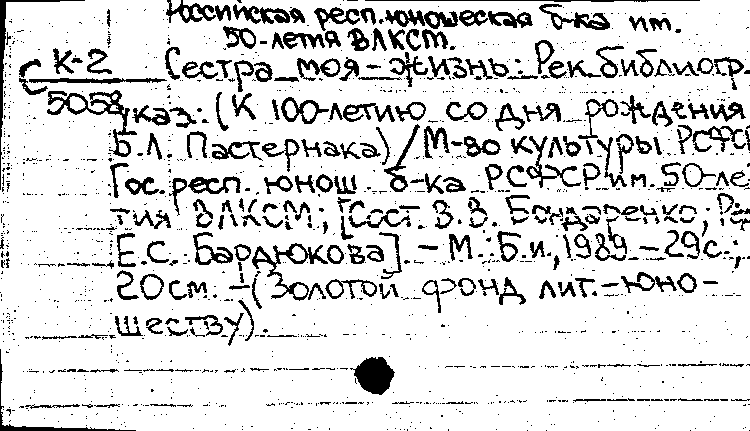 Российская респ. юношеская б-ка им.
50-летия ВЛКСМ.
С К-2 Сестра моя - жизнь: Рек. библиогр.
5058 указ.: (К 100-летию со дня рождения
Б.Л. Пастернака) / М-во культуры РСФС
Гос. респ. юнош б-ка РСФСР им. 50-ле
тия ВЛКСМ; [Сост. В.В. Бондаренко; Ре
Е.С. Бардюкова]. - М.: Б.и, 1989 - 29с.;
20см. - (Золотой фонд лит. - юно-
шеству).